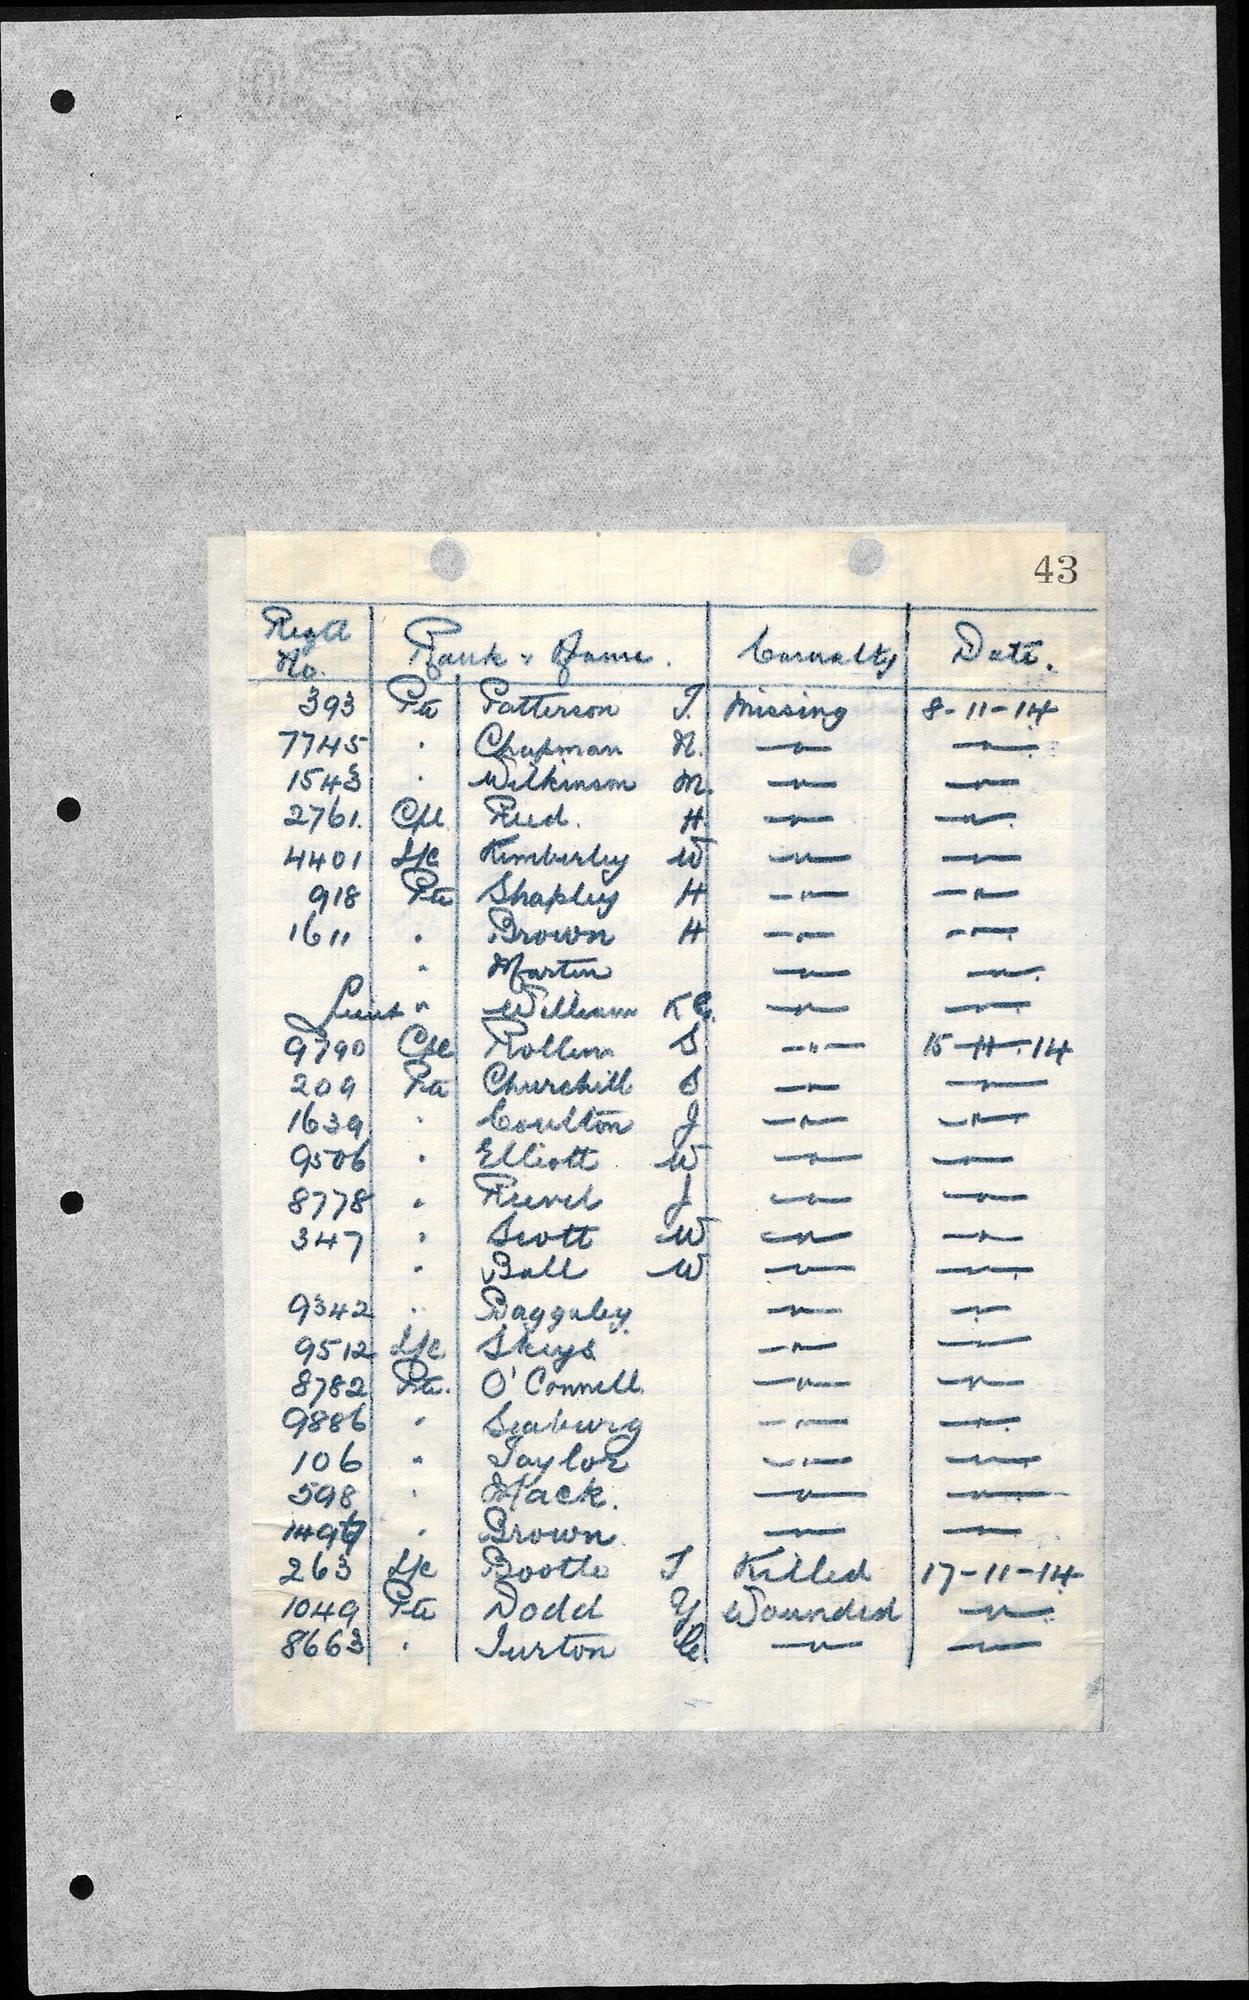 43
Regtl No. Rank & Name. Casualty Date.
393 Pte Patterson J. Missing 8-11-14
7745 " Chapman N. —"— —"—
1543 " Wilkinson M. —"— —"—
2761. Cpl. Reed. H. —"— —"—
4401 L/c Kimberley W —"— —"—
918 Pte Shapley H —"— —"—
1611 " Brown H —"— —"—
" Martin —"— —"—
Lieut " William K G. —"— —"—
9790 Cpl Rollins S —"— 15-11-14
209 Pte Churchill S —"— —"—
1639 " Coulton J —"— —"—
9506 " Elliott W —"— —"—
8778 " J —"— —"—
347 " Scott W —"— —"—
" Ball W —"— —"—
9342 " Baggaley. —"— —"—
9512 L/c Skeys. —"— —"—
8782 Pte. O'Connell. —"— —"—
9886 " Seaburg —"— —"—
106 " Taylor —"— —"—
598 " Mack. —"— —"—
" Brown. —"— —"—
263 L/c Boote J Killed 17-11-14
1049 Pte Dodd Y Wounded —"—
8663 " Turton C. —"— —"—